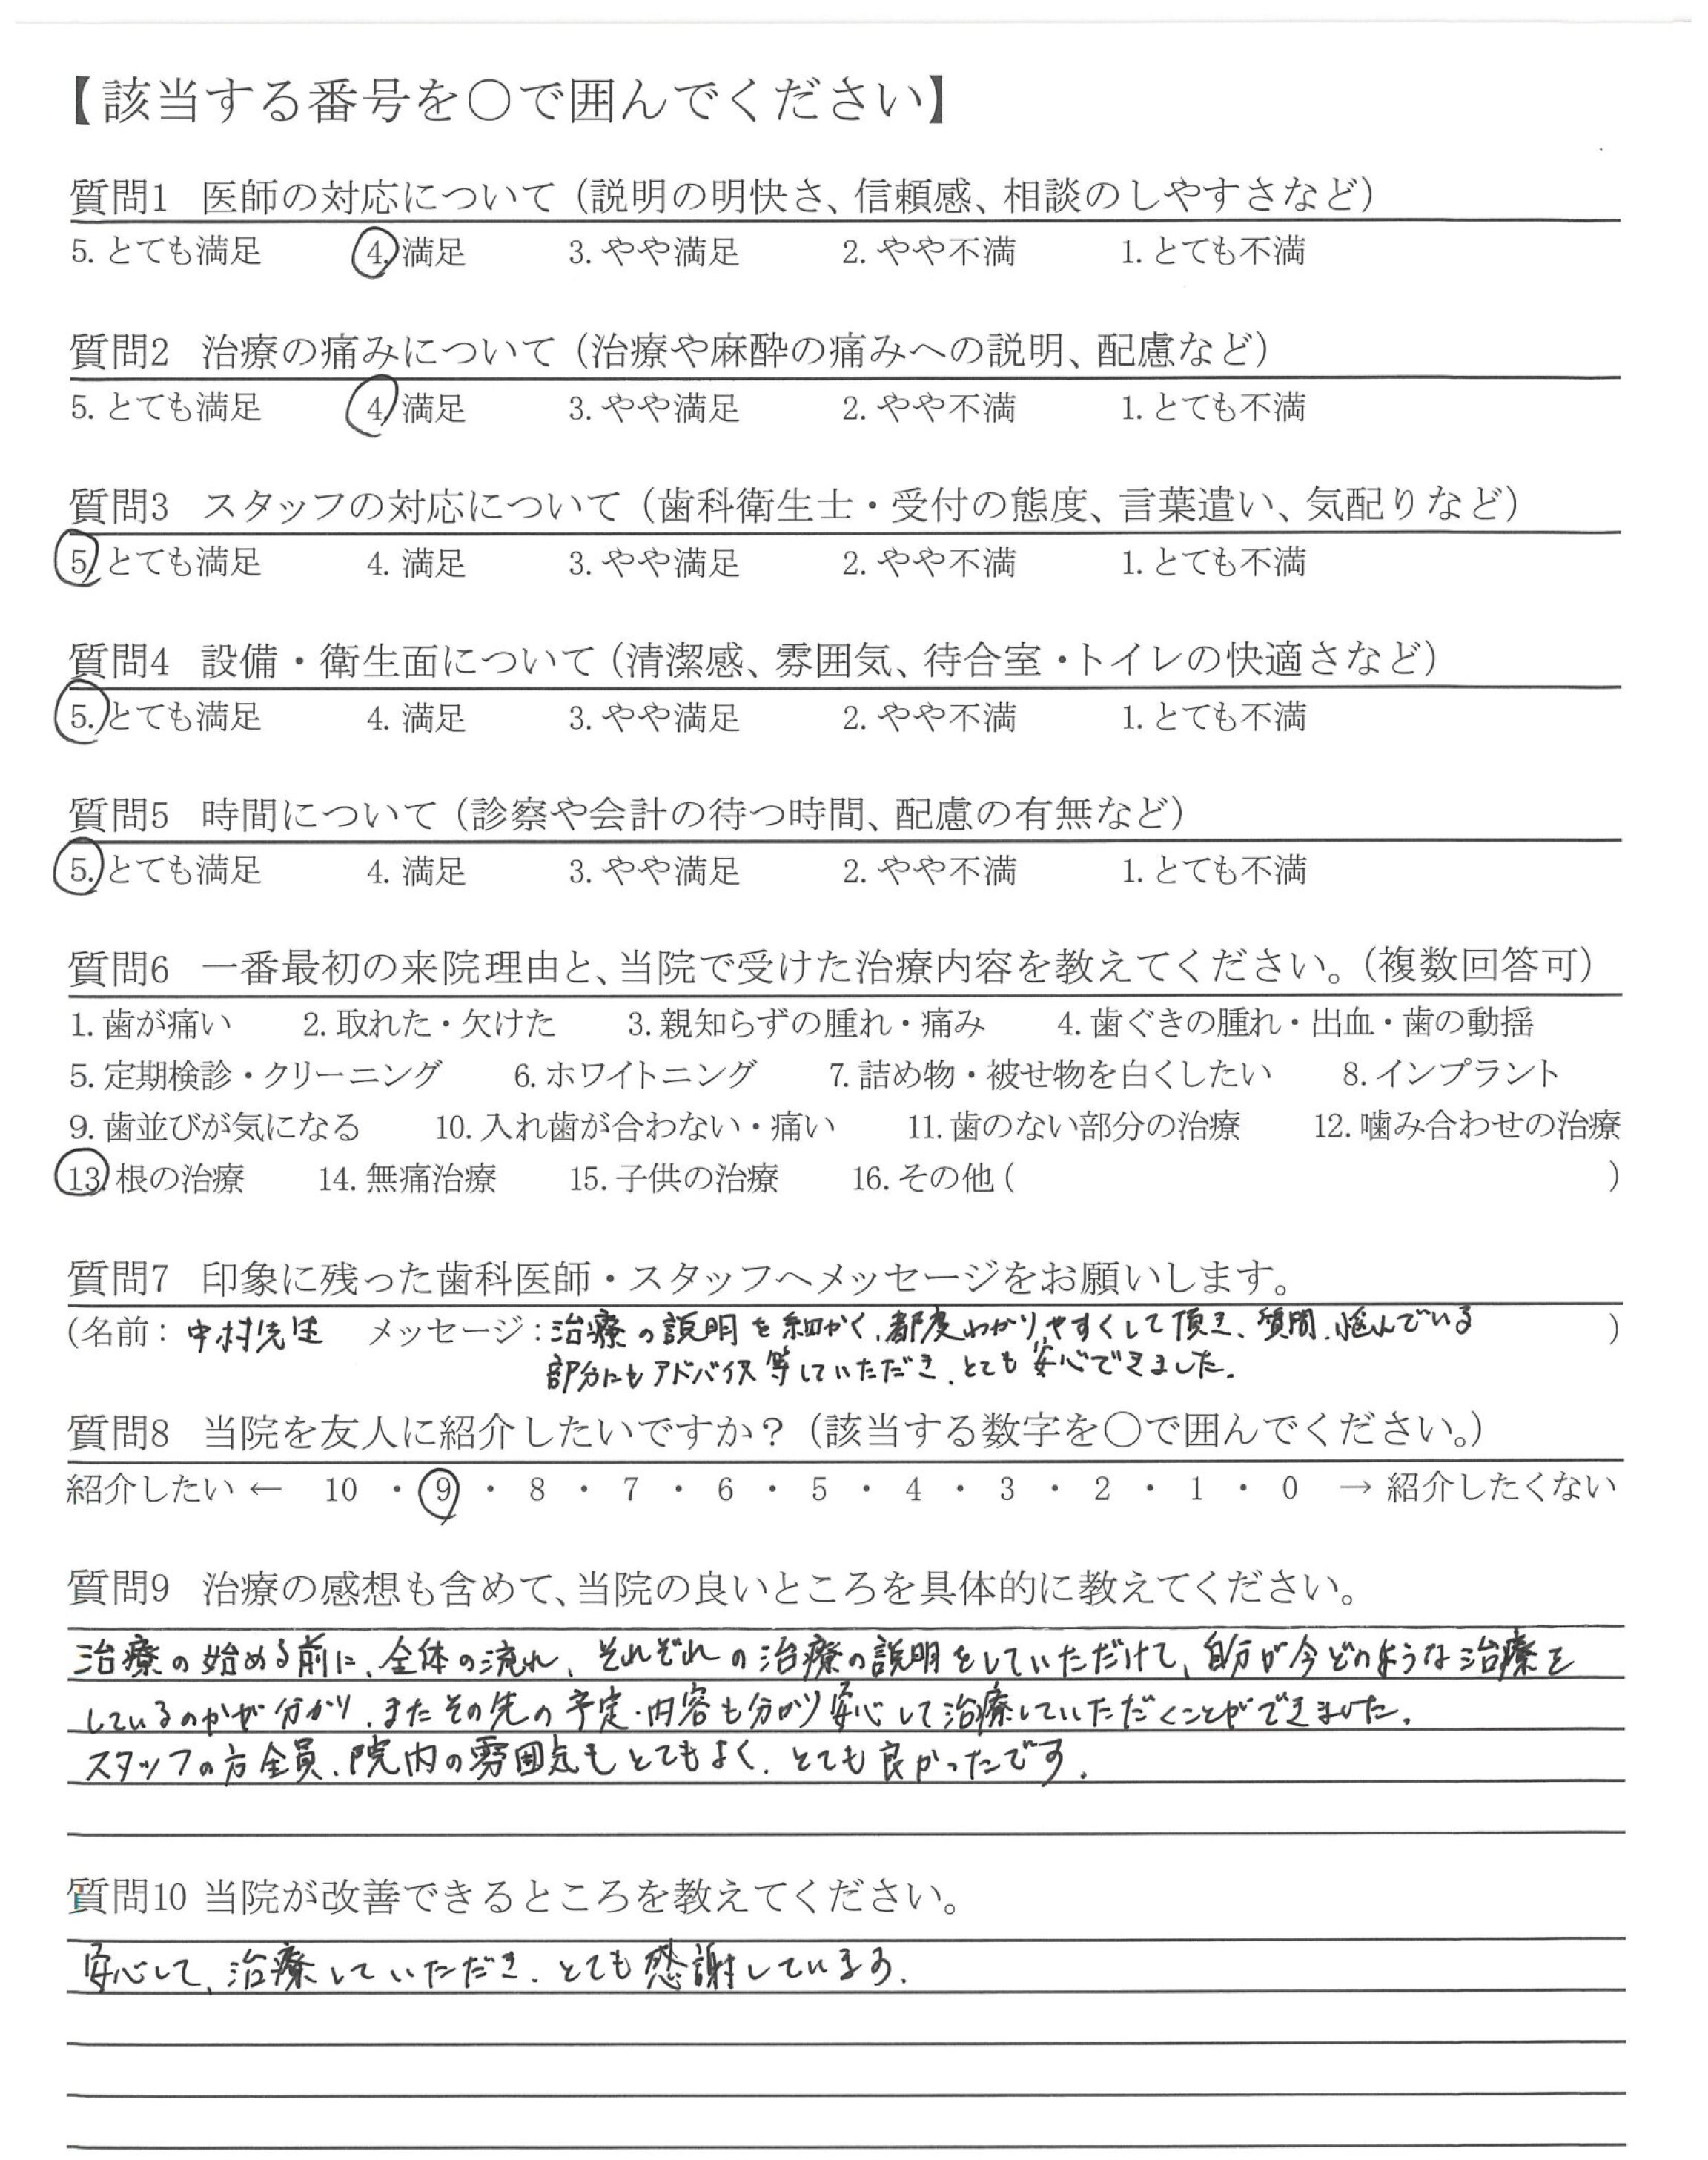 【該当する番号を〇で囲んでください】
質問1 医師の対応について（説明の明快さ、信頼感、相談のしやすさなど）
5. とても満足 4. 満足 3. やや満足 2. やや不満 1. とても不満
質問2 治療の痛みについて（治療や麻酔の痛みへの説明、配慮など）
5. とても満足 4. 満足 3. やや満足 2. やや不満 1. とても不満
質問3 スタッフの対応について（歯科衛生士・受付の態度、言葉遣い、気配りなど）
5. とても満足 4. 満足 3. やや満足 2. やや不満 1. とても不満
質問4 設備・衛生面について（清潔感、雰囲気、待合室・トイレの快適さなど）
5. とても満足 4. 満足 3. やや満足 2. やや不満 1. とても不満
質問5 時間について（診察や会計の待つ時間、配慮の有無など）
5. とても満足 4. 満足 3. やや満足 2. やや不満 1. とても不満
質問6 一番最初の来院理由と、当院で受けた治療内容を教えてください。（複数回答可）
1. 歯が痛い 2. 取れた・欠けた 3. 親知らずの腫れ・痛み 4. 歯ぐきの腫れ・出血・歯の動揺
5. 定期検診・クリーニング 6. ホワイトニング 7. 詰め物・被せ物を白くしたい 8. インプラント
9. 歯並びが気になる 10. 入れ歯が合わない・痛い 11. 歯のない部分の治療 12. 噛み合わせの治療
13. 根の治療 14. 無痛治療 15. 子供の治療 16. その他（ ）
質問7 印象に残った歯科医師・スタッフへメッセージをお願いします。
（名前：中村先生 メッセージ：治療の説明を細かく、都度わかりやすくして頂き、質問、悩んでいる ）
部分にもアドバイス等していただき、とても安心できました。
質問8 当院を友人に紹介したいですか？（該当する数字を〇で囲んでください。）
紹介したい ← 10 ・ 9 ・ 8 ・ 7 ・ 6 ・ 5 ・ 4 ・ 3 ・ 2 ・ 1 ・ 0 → 紹介したくない
質問9 治療の感想も含めて、当院の良いところを具体的に教えてください。
治療の始める前に、全体の流れ、それぞれの治療の説明をしていただけて、自分が今どのような治療を
しているのかが分かり、またその先の予定・内容も分かり安心して治療していただくことができました。
スタッフの方全員、院内の雰囲気もとてもよく、とても良かったです。
質問10 当院が改善できるところを教えてください。
安心して、治療していただき、とても感謝しています。